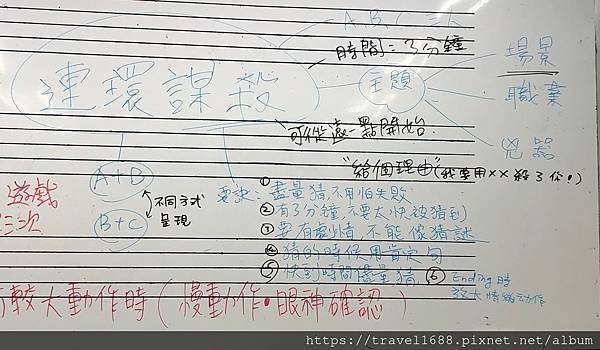 A,B,C三人
時間:3分鐘
連環謀殺
主題
場景
職業
兇器
可從遠一點開始
"給個理由"(我要用××殺了你!)
A+B
B+C
不同方式
呈現
遊戲
三次
要訣:①盡量猜,不用怕失敗
②有3分鐘,不要太快被猜到
③要有劇情,不能像猜謎
④猜的時候用肯定句
⑤快到時間儘量猜
⑥Ending時
放大情緒動作
較大動作時(慢動作•眼神確認)
https://travel1688.pixnet.net/album